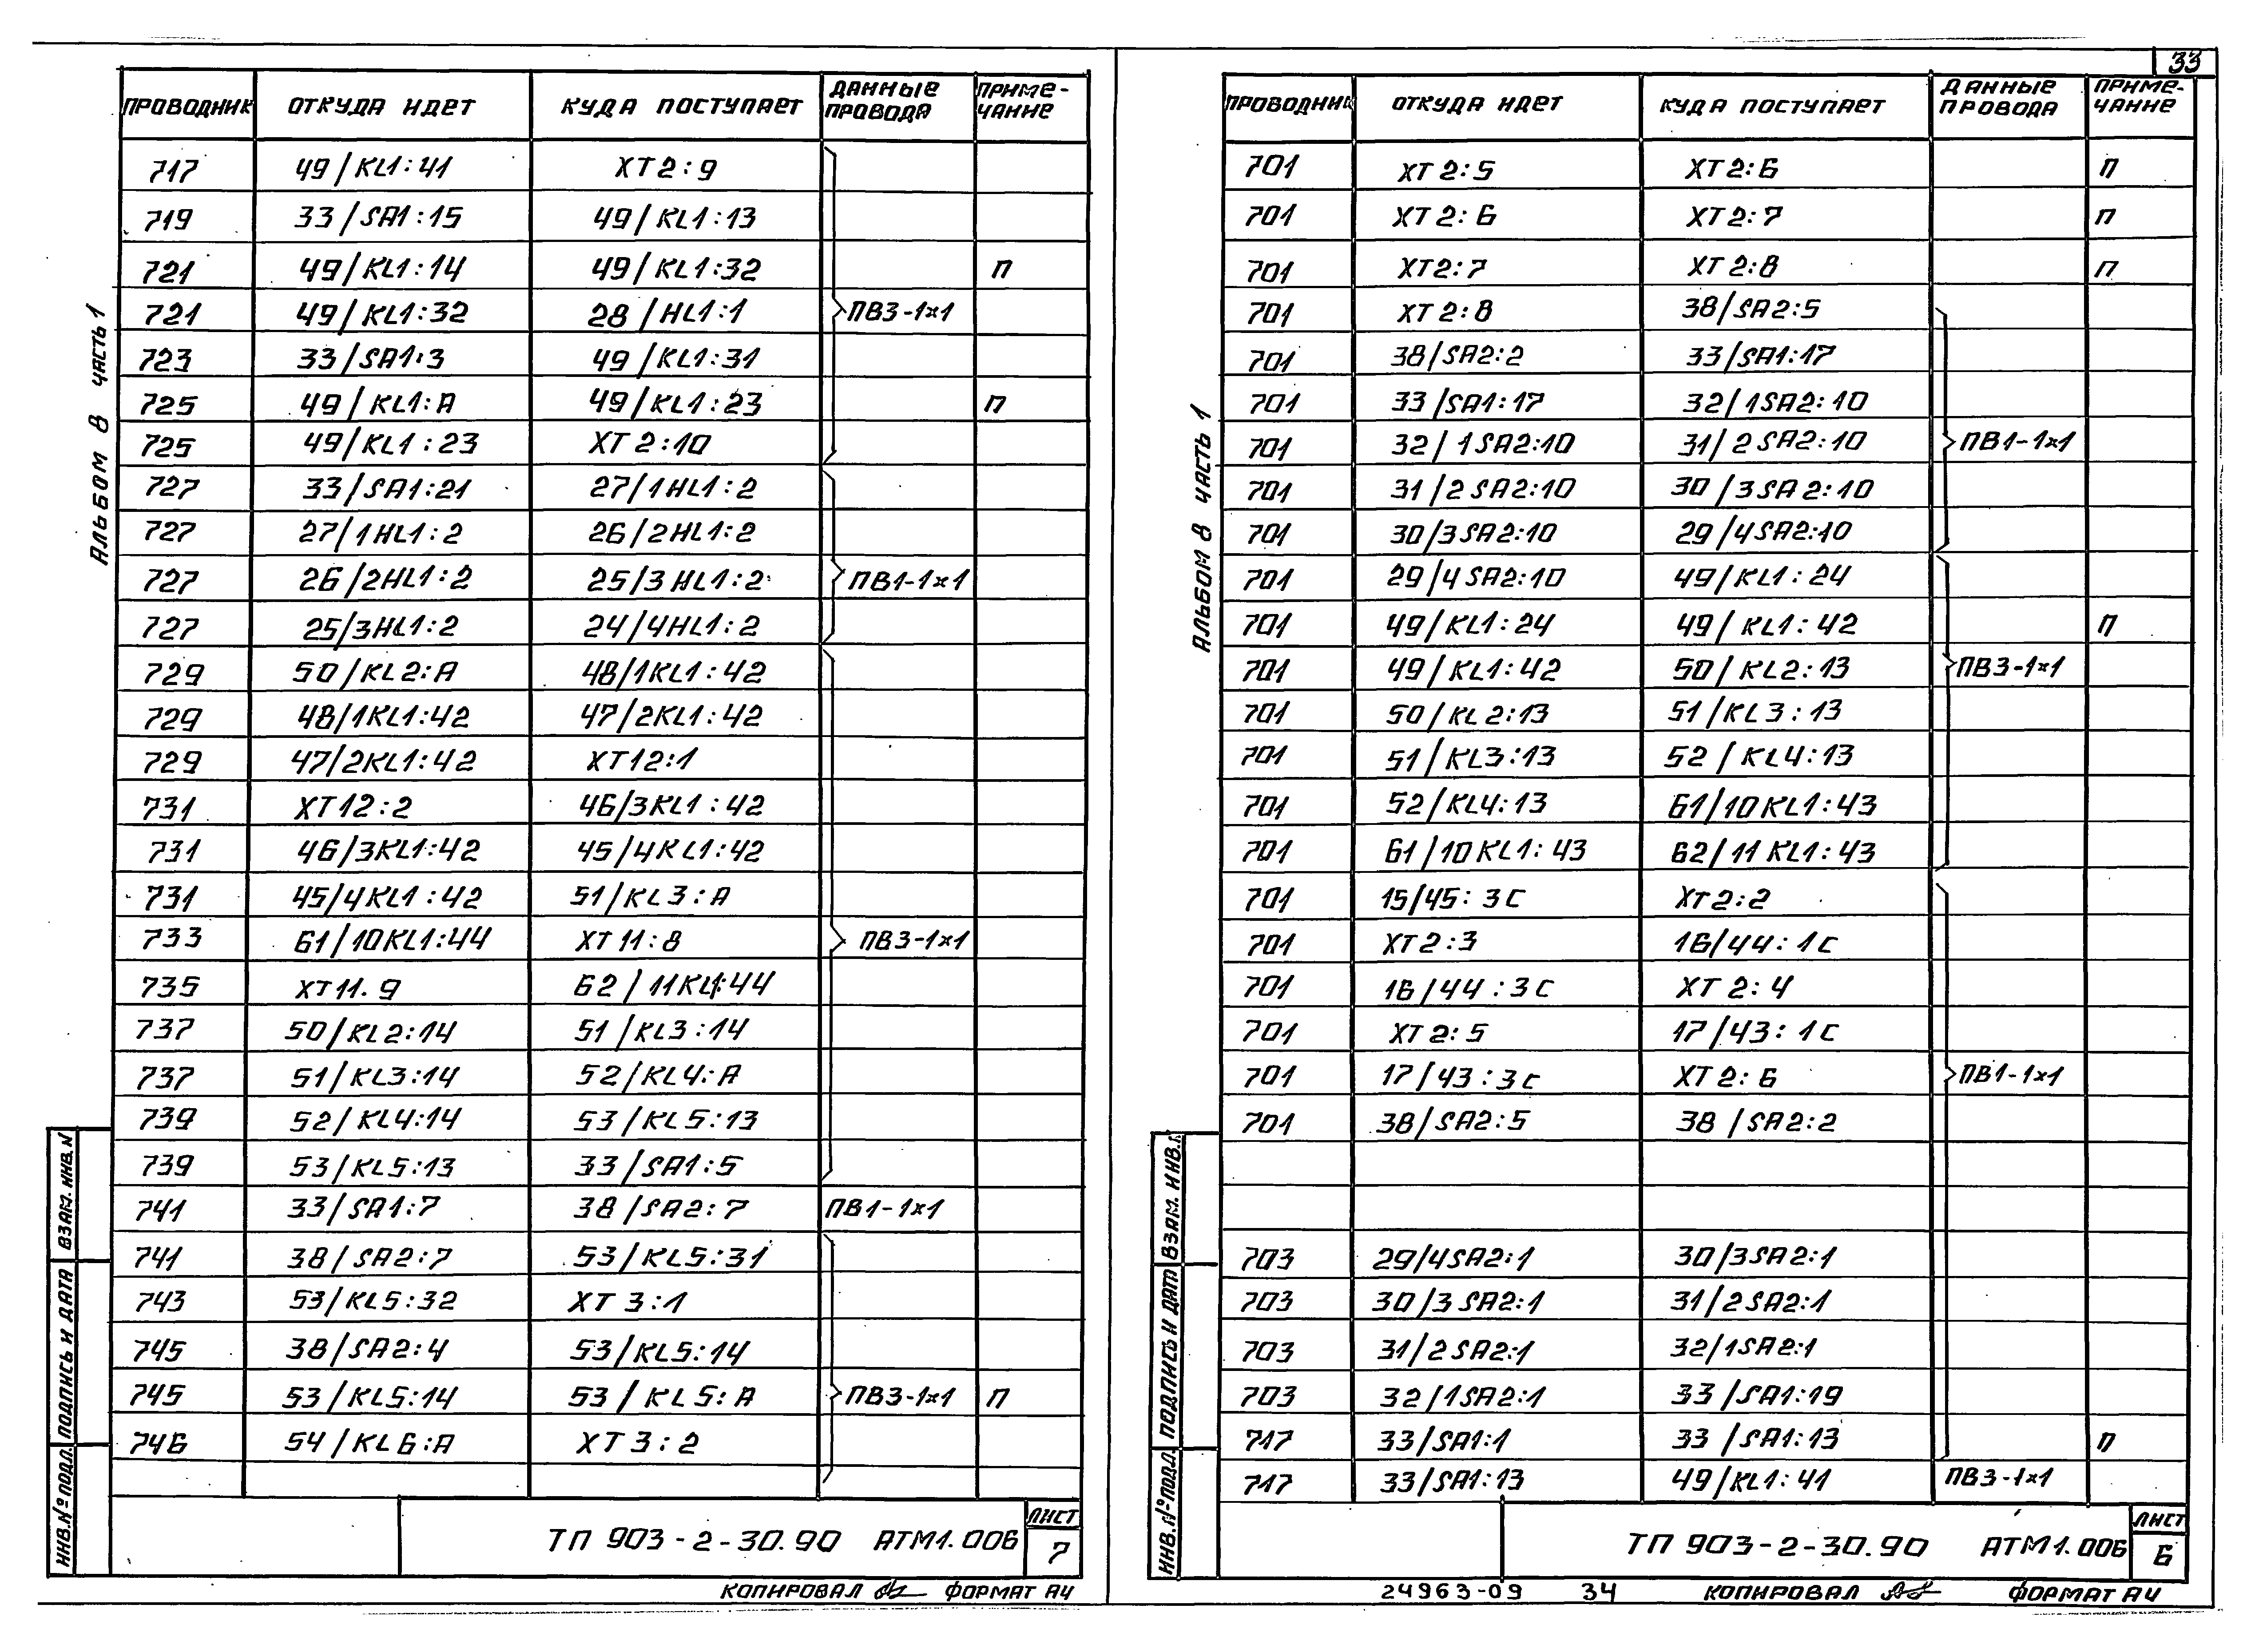 33
ПРОВОДНИК ОТКУДА ИДЕТ КУДА ПОСТУПАЕТ ДАННЫЕ ПРОВОДА ПРИМЕ-ЧАНИЕ
717 49/KL1:41 XT2:9
719 33/SA1:15 49/KL1:13
721 49/KL1:14 49/KL1:32 П
721 49/KL1:32 28/HL1:1 ПВ3-1×1
723 33/SA1:3 49/KL1:31
725 49/KL1:A 49/KL1:23 П
725 49/KL1:23 XT2:10
727 33/SA1:21 27/1HL1:2
727 27/1HL1:2 26/2HL1:2
727 26/2HL1:2 25/3HL1:2 ПВ1-1×1
727 25/3HL1:2 24/4HL1:2
729 50/KL2:A 48/1KL1:42
729 48/1KL1:42 47/2KL1:42
729 47/2KL1:42 XT12:1
731 XT12:2 46/3KL1:42
731 46/3KL1:42 45/4KL1:42
731 45/4KL1:42 51/KL3:A
733 61/10KL1:44 XT11:8 ПВ3-1×1
735 XT11.9 62/11KL1:44
737 50/KL2:14 51/KL3:14
737 51/KL3:14 52/KL4:A
739 52/KL4:14 53/KL5:13
739 53/KL5:13 33/SA1:5
741 33/SA1:7 38/SA2:7 ПВ1-1×1
741 38/SA2:7 53/KL5:31
743 53/KL5:32 XT3:1
745 38/SA2:4 53/KL5:14
745 53/KL5:14 53/KL5:A ПВ3-1×1 П
746 54/KL6:A XT3:2
ТП 903-2-30.90 АТМ1.006 ЛИСТ 7
КОПИРОВАЛ ФОРМАТ А4
АЛЬБОМ 8 ЧАСТЬ 1
ВЗАМ. ИНВ. N
ПОДПИСЬ И ДАТА
ИНВ. № ПОДЛ.
ПРОВОДНИК ОТКУДА ИДЕТ КУДА ПОСТУПАЕТ ДАННЫЕ ПРОВОДА ПРИМЕ-ЧАНИЕ
701 XT2:5 XT2:6 П
701 XT2:6 XT2:7 П
701 XT2:7 XT2:8 П
701 XT2:8 38/SA2:5
701 38/SA2:2 33/SA1:17
701 33/SA1:17 32/1SA2:10
701 32/1SA2:10 31/2SA2:10 ПВ1-1×1
701 31/2SA2:10 30/3SA2:10
701 30/3SA2:10 29/4SA2:10
701 29/4SA2:10 49/KL1:24
701 49/KL1:24 49/KL1:42 П
701 49/KL1:42 50/KL2:13 ПВ3-1×1
701 50/KL2:13 51/KL3:13
701 51/KL3:13 52/KL4:13
701 52/KL4:13 61/10KL1:43
701 61/10KL1:43 62/11KL1:43
701 15/45:3C XT2:2
701 XT2:3 16/44:1C
701 16/44:3C XT2:4
701 XT2:5 17/43:1C
701 17/43:3C XT2:6 ПВ1-1×1
701 38/SA2:5 38/SA2:2
703 29/4SA2:1 30/3SA2:1
703 30/3SA2:1 31/2SA2:1
703 31/2SA2:1 32/1SA2:1
703 32/1SA2:1 33/SA1:19
717 33/SA1:1 33/SA1:13 П
717 33/SA1:13 49/KL1:41 ПВ3-1×1
ТП 903-2-30.90 АТМ1.006 ЛИСТ 6
24963-09 34 КОПИРОВАЛ ФОРМАТ А4
АЛЬБОМ 8 ЧАСТЬ 1
ВЗАМ. ИНВ.
ПОДПИСЬ И ДАТ
ИНВ. № ПОДЛ.